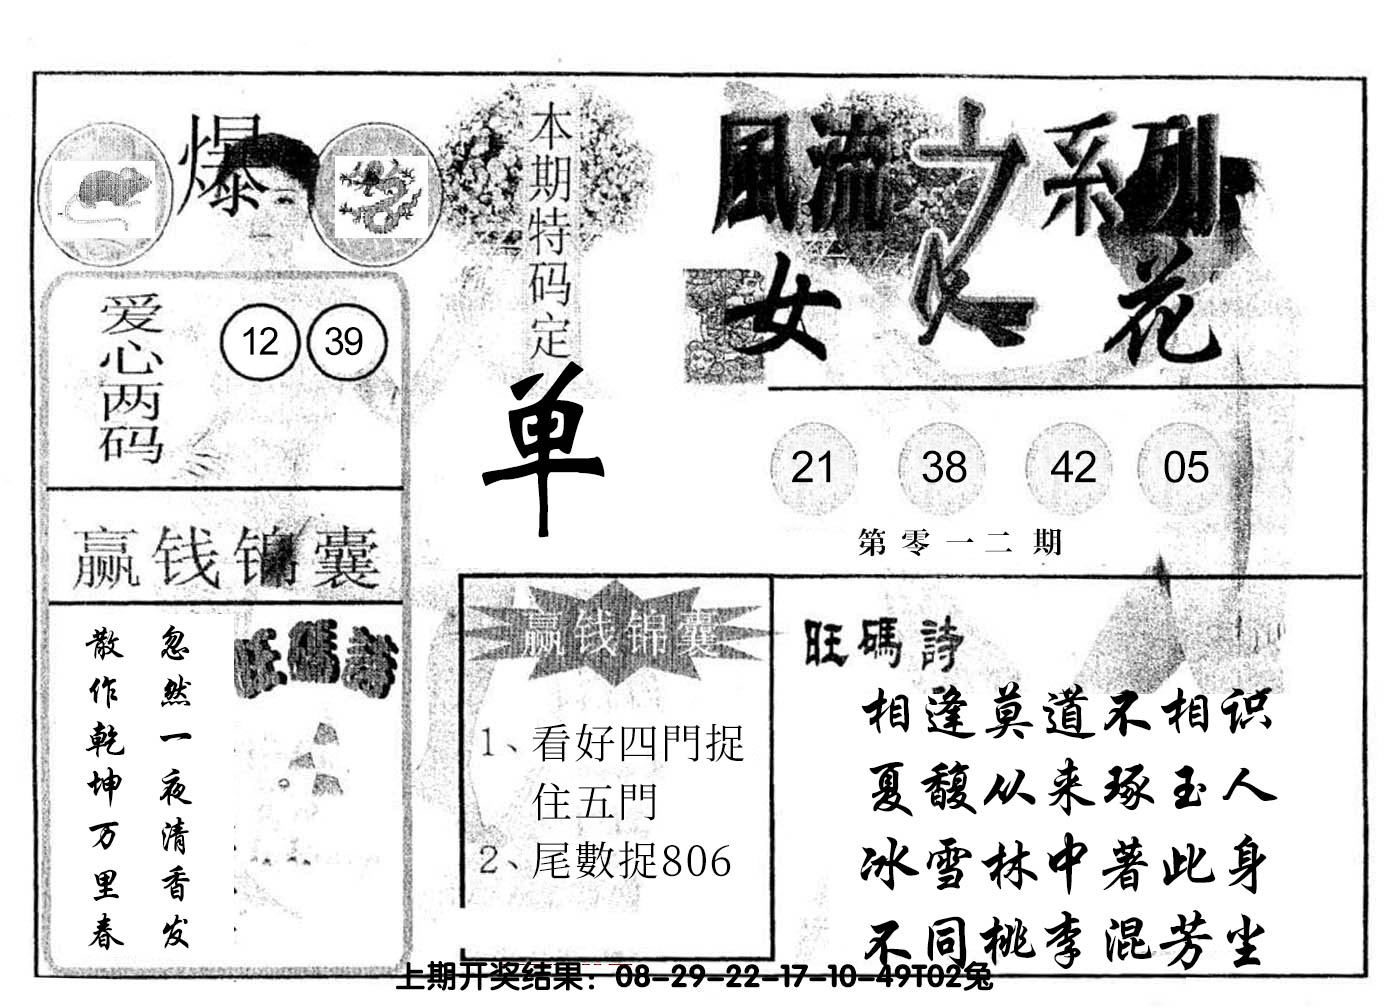 爆
本期特码定
单
風流之系列
女人花
爱心两码
12 39
21 38 42 05
第零一二期
赢钱锦囊
忽然一夜清香发
散作乾坤万里春
旺碼詩
赢钱锦囊
1、看好四門捉
住五門
2、尾數捉806
旺碼詩
相逢莫道不相识
夏馥从来琢玉人
冰雪林中著此身
不同桃李混芳尘
上期开奖结果：08-29-22-17-10-49T02兔